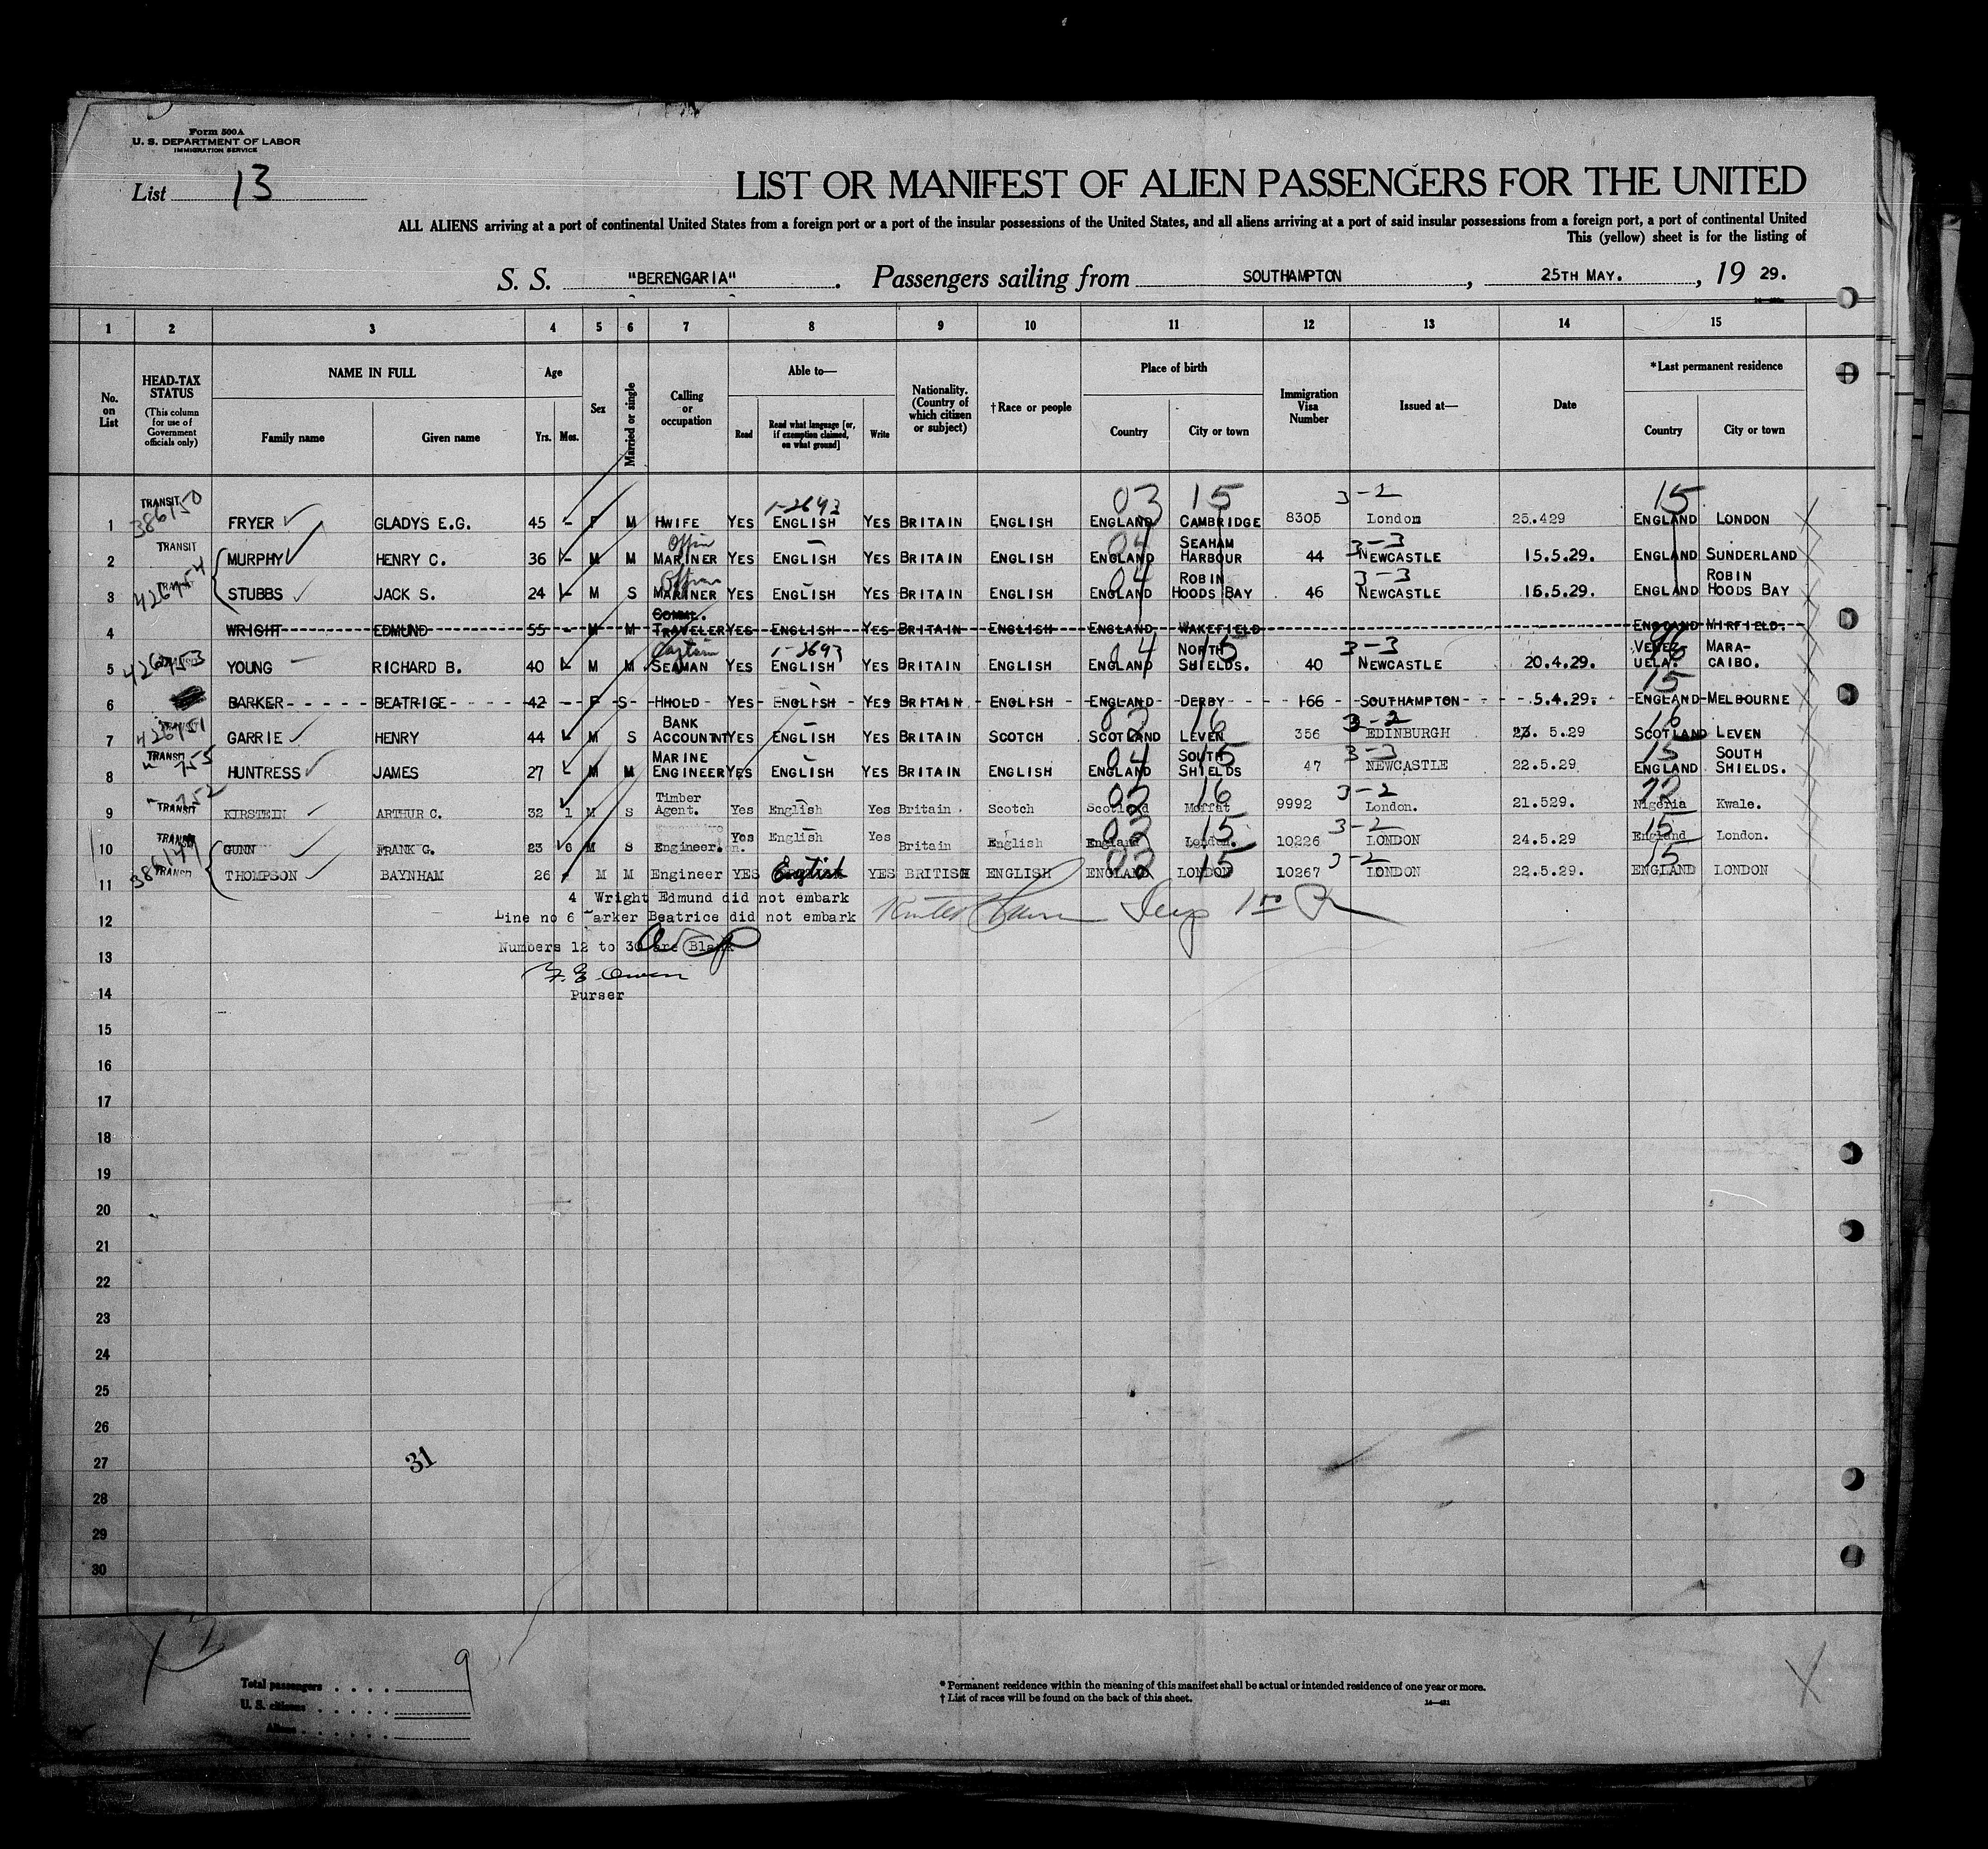 Form 500A
U. S. DEPARTMENT OF LABOR
IMMIGRATION SERVICE
List 13
LIST OR MANIFEST OF ALIEN PASSENGERS FOR THE UNITED
ALL ALIENS arriving at a port of continental United States from a foreign port or a port of the insular possessions of the United States, and all aliens arriving at a port of said insular possessions from a foreign port, a port of continental United
This (yellow) sheet is for the listing of
S. S. "BERENGARIA". Passengers sailing from SOUTHAMPTON, 25TH MAY., 19 29.
1 2 3 4 5 6 7 8 9 10 11 12 13 14 15
No. on List
HEAD-TAX STATUS (This column for use of Government officials only)
NAME IN FULL
Family name Given name
Age
Yrs. Mos.
Sex
Married or single
Calling or occupation
Able to—
Read Read what language [or, if exemption claimed, on what ground] Write
Nationality. (Country of which citizen or subject)
† Race or people
Place of birth
Country City or town
Immigration Visa Number
Issued at—
Date
*Last permanent residence
Country City or town
TRANSIT 386150 1-2693 03 15 3-2 15
1 FRYER GLADYS E.G. 45 - F M HWIFE YES ENGLISH YES BRITAIN ENGLISH ENGLAND CAMBRIDGE 8305 London 25.429 ENGLAND LONDON
2 TRANSIT MURPHY HENRY C. 36 - M M MARINER YES ENGLISH YES BRITAIN ENGLISH ENGLAND 04 SEAHAM HARBOUR 44 3-3 NEWCASTLE 15.5.29. ENGLAND SUNDERLAND
3 426754 STUBBS JACK S. 24 - M S MARINER YES ENGLISH YES BRITAIN ENGLISH ENGLAND 04 ROBIN HOODS BAY 46 3-3 NEWCASTLE 16.5.29. ENGLAND ROBIN HOODS BAY
4 WRIGHT EDMUND 55 - M M COMML. TRAVELER YES ENGLISH YES BRITAIN ENGLISH ENGLAND WAKEFIELD ENGLAND MIRFIELD.
5 426753 YOUNG RICHARD B. 40 - M M Captain SEAMAN YES 1-2693 ENGLISH YES BRITAIN ENGLISH ENGLAND 04 NORTH SHIELDS. 15 40 3-3 NEWCASTLE 20.4.29. VENEZ-UELA. 96 MARA-CAIBO.
6 BARKER BEATRIGE 42 - F S HHOLD YES ENGLISH YES BRITAIN ENGLISH ENGLAND DERBY 166 SOUTHAMPTON 5.4.29. 15 ENGLAND MELBOURNE
7 426751 GARRIE HENRY 44 - M S BANK ACCOUNTNT YES ENGLISH YES BRITAIN SCOTCH SCOTLAND 02 LEVEN 16 356 3-2 EDINBURGH 23. 5.29 16 SCOTLAND LEVEN
8 TRANSIT " 755 HUNTRESS JAMES 27 - M M MARINE ENGINEER YES ENGLISH YES BRITAIN ENGLISH ENGLAND 04 SOUTH SHIELDS 15 47 3-3 NEWCASTLE 22.5.29 15 ENGLAND SOUTH SHIELDS.
9 TRANSIT " 752 KIRSTEIN ARTHUR C. 32 1 M S Timber Agent. Yes English Yes Britain. Scotch Scotland 02 Moffat 16 9992 3-2 London. 21.529. 72 Nigeria Kwale.
10 TRANSIT GUNN FRANK G. 23 6 M S Engineer. Yes English Yes Britain English England 02 London. 15 10226 3-2 LONDON 24.5.29 15 England London.
11 386149 TRANSIT THOMPSON BAYNHAM 26 M M Engineer YES English YES BRITISH ENGLISH ENGLAND 02 LONDON 15 10267 3-2 LONDON 22.5.29. 15 ENGLAND LONDON
4 Wright Edmund did not embark
12 Line no 6 arker Beatrice did not embark
Numbers 12 to 30 are Blank
13
14 Purser
15
16
17
18
19
20
21
22
23
24
25
26
27 31
28
29
30
Total passengers . . . . 9
U. S. citizens . . . . .
Aliens . . . . . .
* Permanent residence within the meaning of this manifest shall be actual or intended residence of one year or more.
† List of races will be found on the back of this sheet.